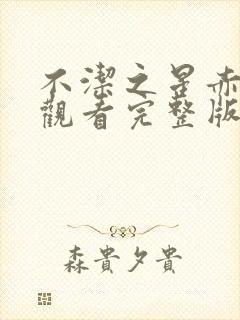 不潔之星赤
觀看完整版
森貴夕貴